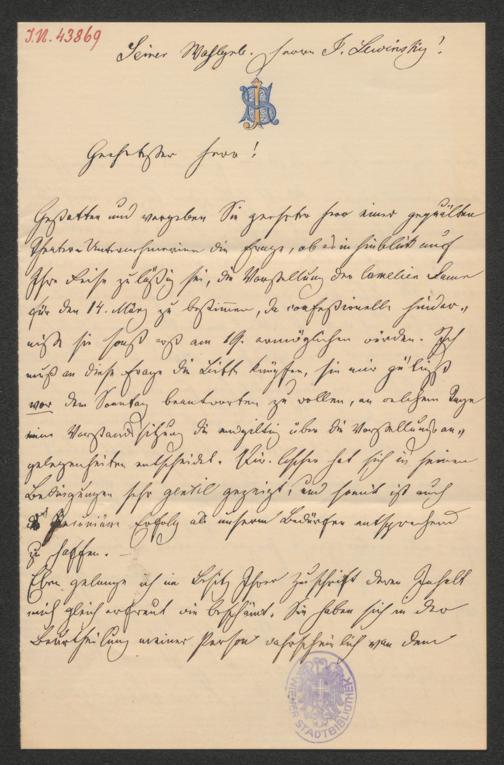 I.N. 43869
Seiner Wohlgeb. Herrn J. Lewinsky!
Geehrtester Herr!
Gestatten und vergeben Sie geehrter Herr einer gequälten
Theater Unternehmerin die Frage, ob es in Hinblick auf
Ihre Reise zuläßig sei, die Vorstellung der Camelien Dame
für den 14. März zu bestimmen, da confessionelle Hinder„
niße sie sonst erst am 19. ermöglichen würden. Ich
muß an diese Frage die Bitte knüpfen, sie mir gütigst
vor dem Sonntag beantworten zu wollen, an welchem Tage
eine Vorstandssitzung die endgiltig über die Vorstellungsan„
gelegenheiten entscheidet. Dir. hat sich in seinen
Bedingungen sehr gentil gezeigt, und somit ist auch
Erfolg als unserm Bedürfen entsprechend
zu hoffen. —
Eben gelange ich in Besitz Ihrer Zuschrift deren Inhalt
mich gleich erfreut wie beschämt. Sie haben sich in der
Beurtheilung meiner Person wahrscheinlich von dem
WIENER STADTBIBLIOTHEK